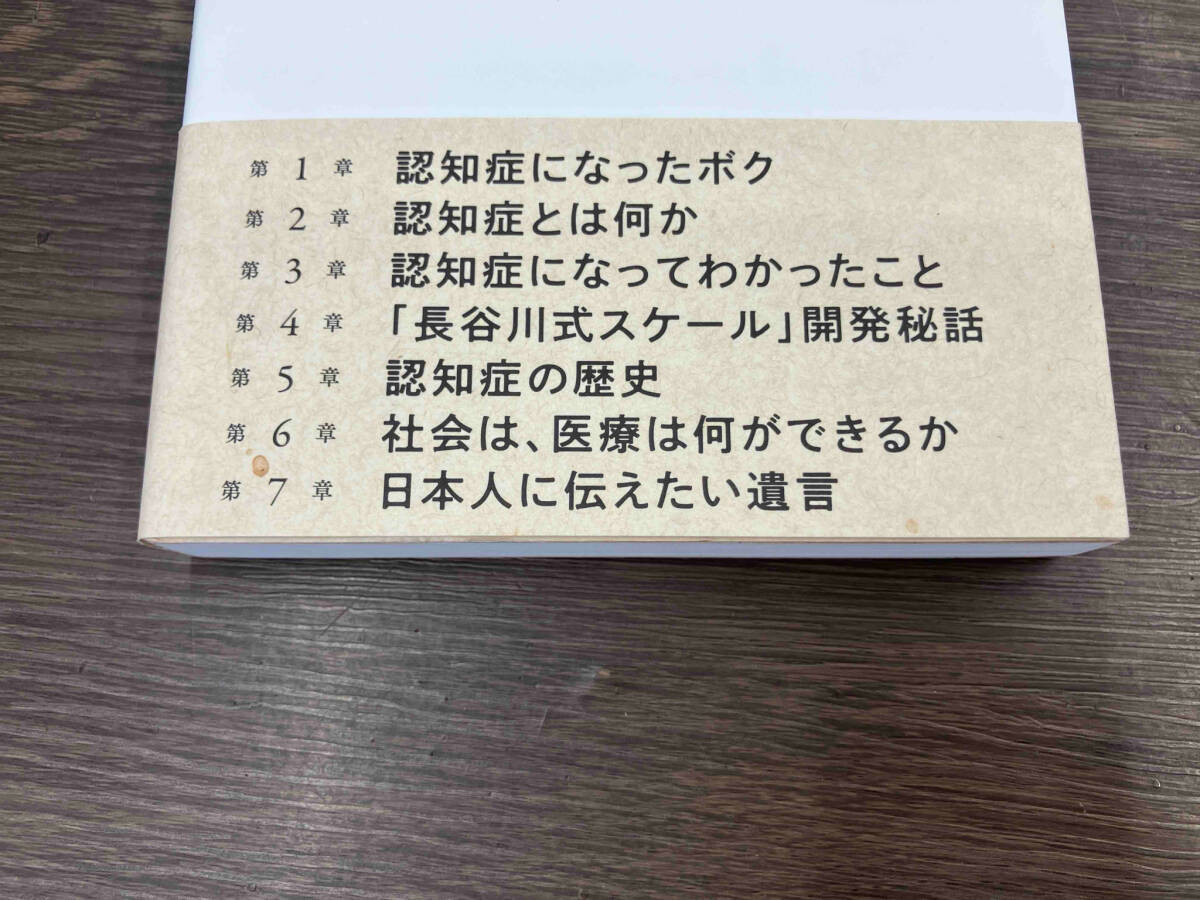 第1章 認知症になったボク
第2章 認知症とは何か
第3章 認知症になってわかったこと
第4章 「長谷川式スケール」開発秘話
第5章 認知症の歴史
第6章 社会は、医療は何ができるか
第7章 日本人に伝えたい遺言